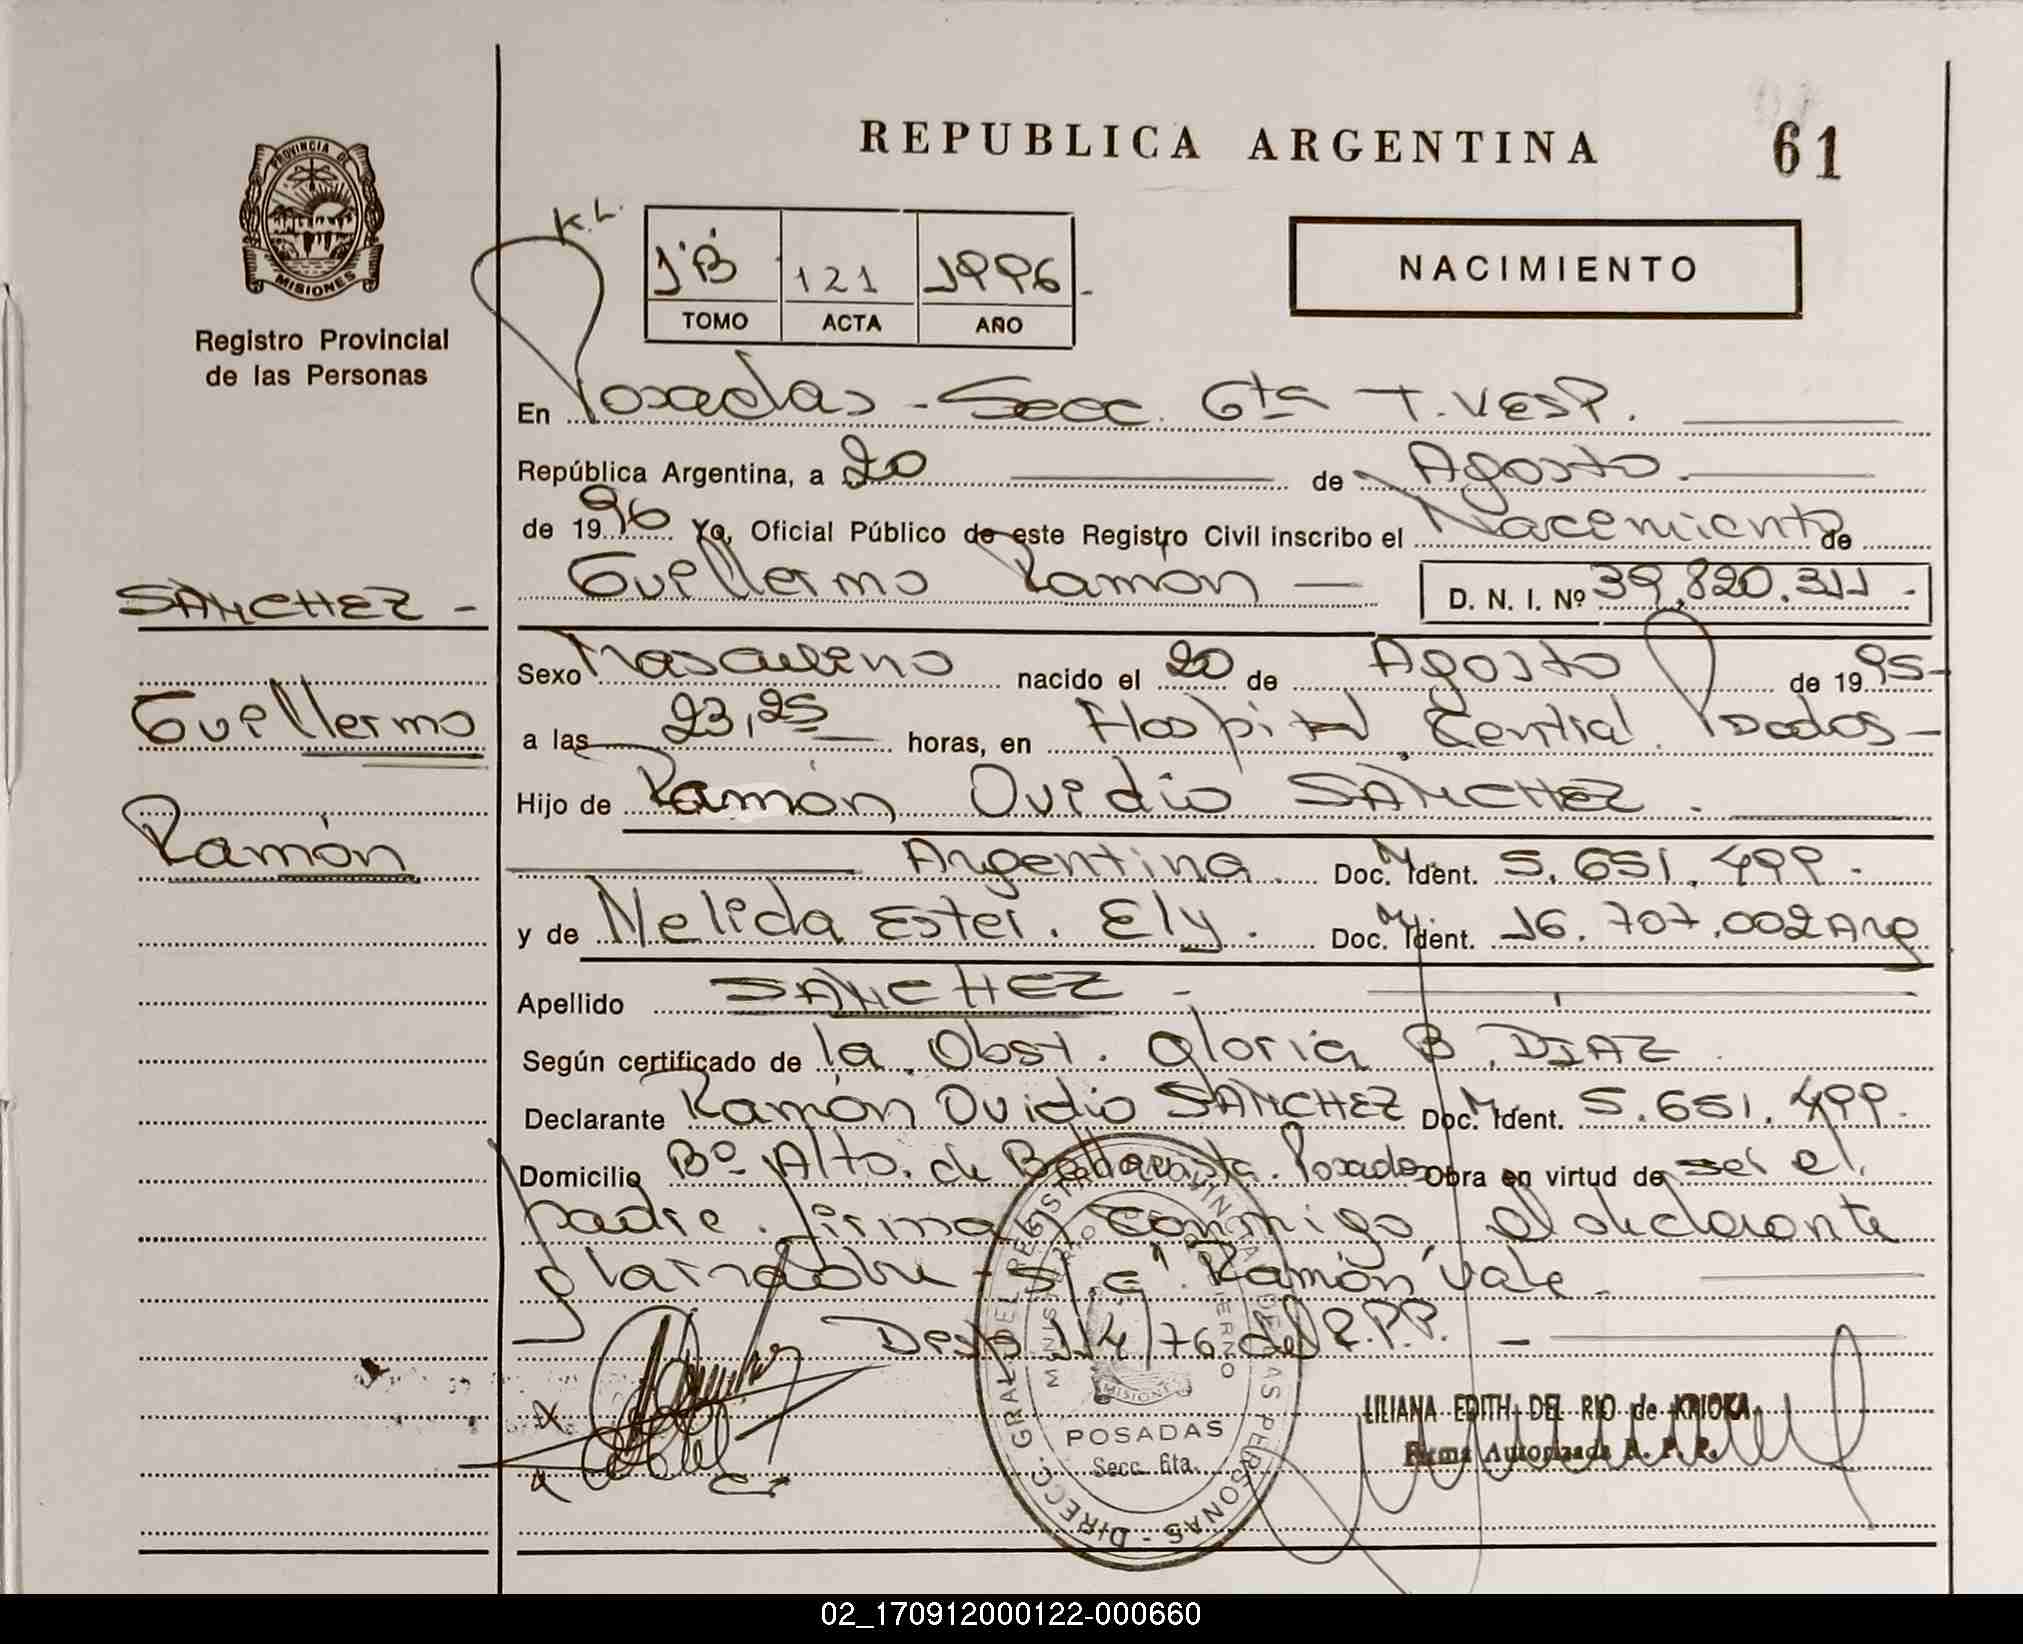 REPUBLICA ARGENTINA
61
PROVINCIA DE MISIONES
Registro Provincial
de las Personas
K.L.
1'B' 121 1996-
TOMO ACTA AÑO
NACIMIENTO
En Posadas - Secc. 6ta T. VESP.
República Argentina, a 20 de Agosto.
de 1996 Yo, Oficial Público de este Registro Civil inscribo el Nacemiento de
Guillermo Ramón D. N. I. Nº 39.820.311.-
SÁNCHEZ -
Guillermo
Ramón
Sexo Masculino nacido el 20 de Agosto de 1995-
a las 23,25 horas, en Hospital Central. Posadas-
Hijo de Ramón Ovidio SÁNCHEZ.
Argentina. Doc. M Ident. 5.651.499.-
y de Nelida Ester. Ely. Doc. M Ident. 16.707.002 Arg
Apellido SÁNCHEZ -
Según certificado de la Obst. Gloria B. DIAZ.
Declarante Ramón Ovidio SÁNCHEZ Doc. M Ident. 5.651.499.
Domicilio Bº Alto. de Bella Vista. Posadas Obra en virtud de ser el
padre. firma conmigo, el declarante
y la madre - S/c "Ramón" vale.
Desp 114/76 del R.P.P. -
x
x
DIRECC. GRAL. DEL REGISTRO PROVINCIAL DE LAS PERSONAS -
MINISTERIO DE GOBIERNO
MISIONES
POSADAS
Secc. 6ta.
LILIANA EDITH DEL RIO de KRIOKA
Firma Autorizada R. P. P.
02_170912000122-000660